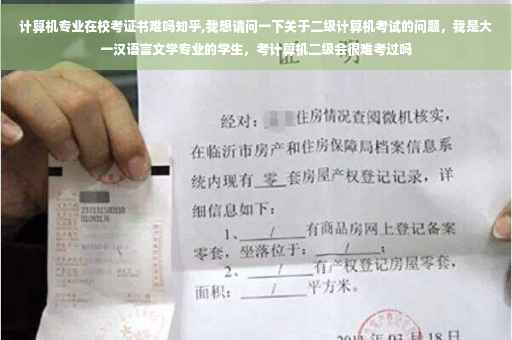 计算机专业在校考证书难吗知乎,我想请问一下关于二级计算机考试的问题，我是大
一汉语言文学专业的学生，考计算机二级会很难考过吗
证 明
经对: 住房情况查阅微机核实，
在临沂市房产和住房保障局档案信息系
统内现有 零 套房屋产权登记记录，详
细信息如下:
1、 / 有商品房网上登记备案
零套，坐落位于: / ;
2、 / 有产权登记房屋零套，
面积: / 平方米。
03月18日